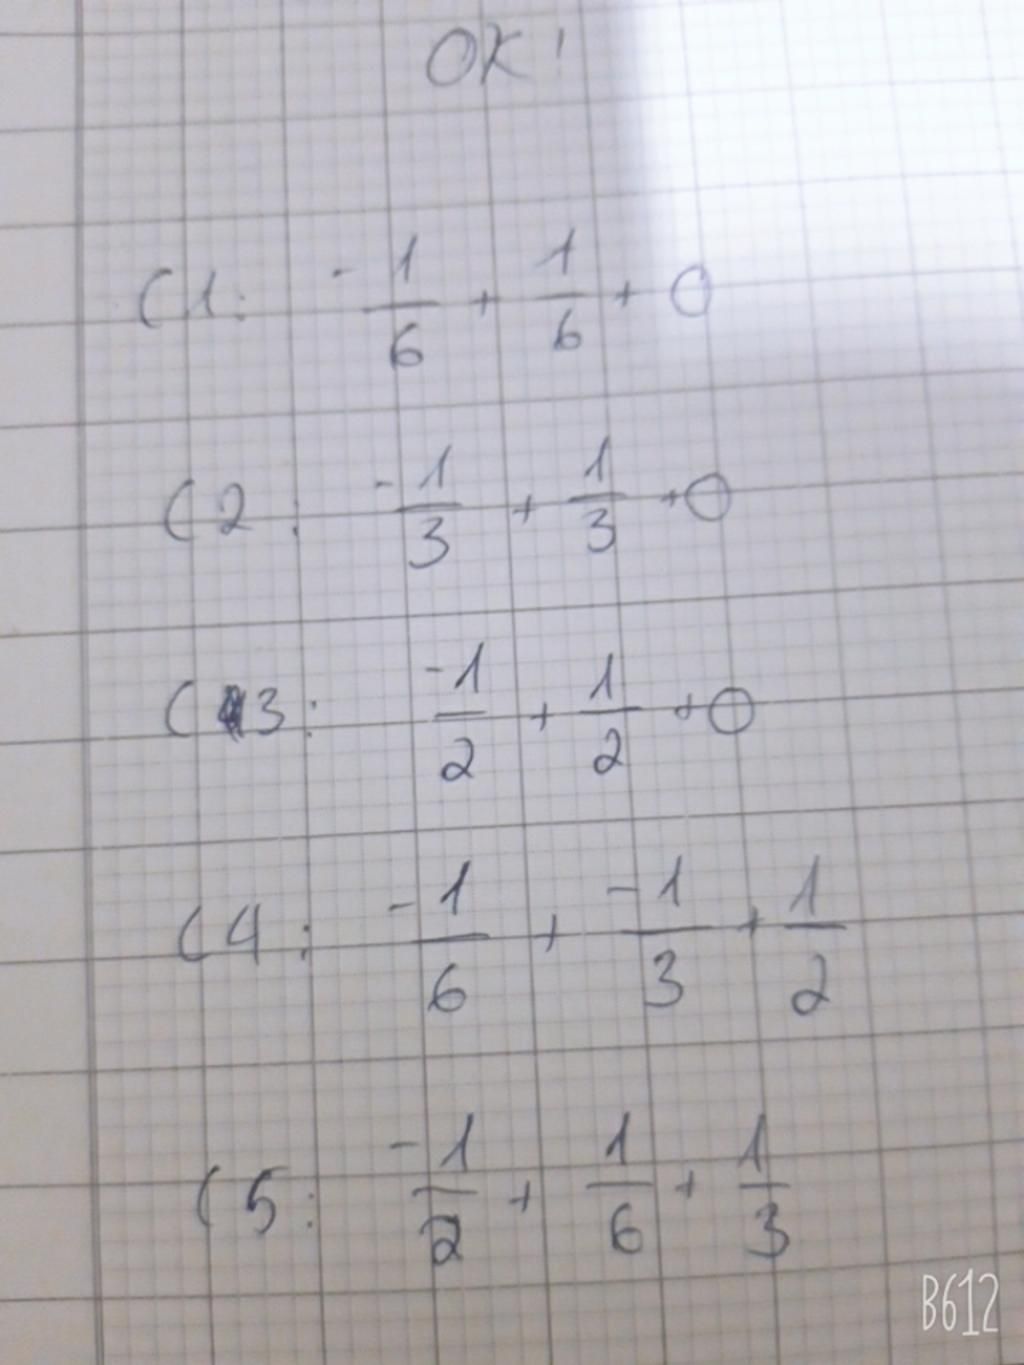 OK!
C1: -1/6 + 1/6 + 0
C2: -1/3 + 1/3 + 0
C3: -1/2 + 1/2 + 0
C4: -1/6 + -1/3 + 1/2
C5: -1/2 + 1/6 + 1/3
B612